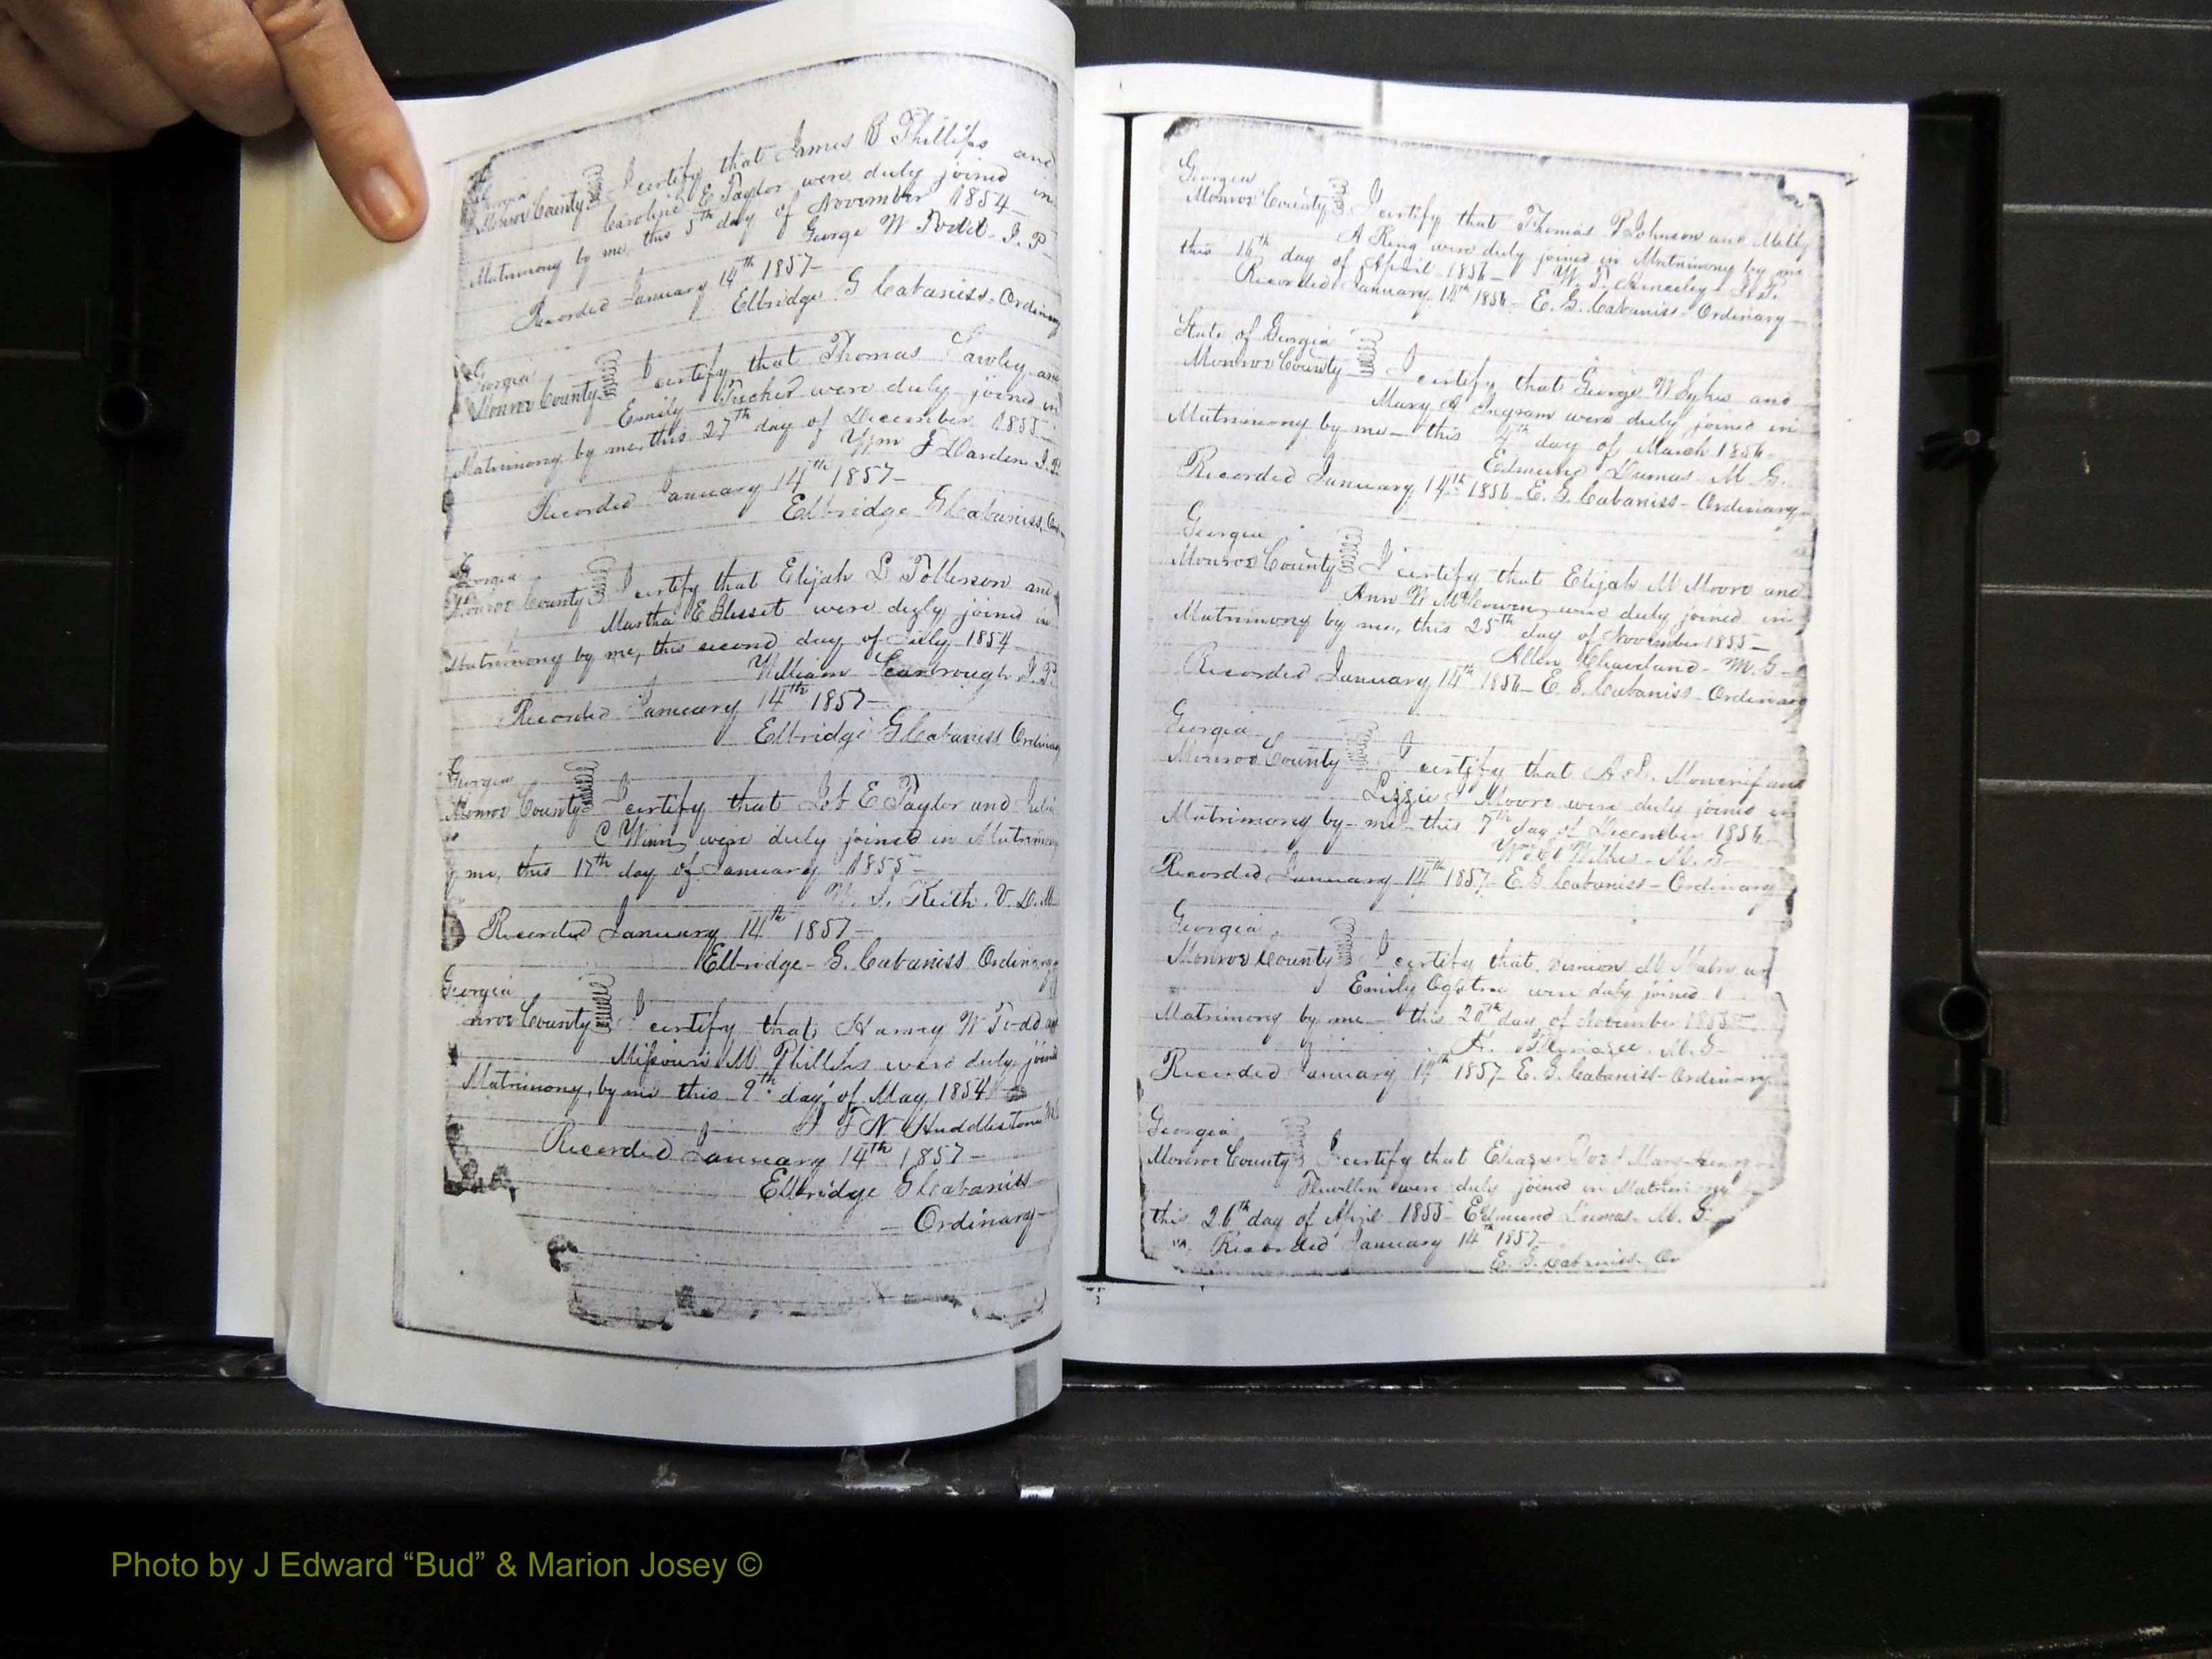 Georgia
Monroe County I certify that James B Phillips and
Caroline E Taylor were duly joined in
Matrimony by me this 5th day of November 1854
George W Todd J. P.
Recorded January 14th 1857
Elbridge G Cabaniss Ordinary
Georgia
Monroe County I certify that Thomas and
Emily Tucker were duly joined in
Matrimony by me, this 27th day of December 1855
Wm F Darden J. P.
Recorded January 14th 1857
Elbridge G Cabaniss,
Georgia
Monroe County I certify that Elijah L Tollerson and
Martha E Blisset were duly joined in
Matrimony by me, this second day of July 1854
William Scarbrough J. P.
Recorded January 14th 1857
Elbridge G Cabaniss Ordinary
Georgia
Monroe County I certify that E Taylor and
C Winn were duly joined in
me, this 17th day of January 1855
Keith. V. D. M.
Recorded January 14th 1857
Elbridge G. Cabaniss Ordinary
Georgia
Monroe County I certify that W Todd
Missouri M Phillips were duly joined
Matrimony, by me this 9th day of May 1854
F N Huddleston
Recorded January 14th 1857
Elbridge G Cabaniss
Ordinary
Georgia
Monroe County I certify that Thomas P Johnson and Milly
A King were duly joined in Matrimony by me
this 16th day of April 1856
Recorded January 14th 1856 E. G. Cabaniss Ordinary
State of Georgia
Monroe County I certify that George W Sykes and
Mary A Ingram were duly joined in
Matrimony by me this 4th day of March 1856
Edmund Dumas M G.
Recorded January 14th 1856 E. G. Cabaniss Ordinary
Georgia
Monroe County I certify that Elijah M Moore and
Ann W were duly joined in
Matrimony by me, this 25th day of November 1855
Allen Cleaveland M. G.
Recorded January 14th 1856 E. G. Cabaniss Ordinary
Georgia
Monroe County I certify that and
Lizzie J Moore were duly joined in
Matrimony by me this 7th day of December 1856
Recorded January 14th 1857 E. G. Cabaniss Ordinary
Georgia,
Monroe County I certify that
Emily were duly joined
Matrimony by me this 20th day of
Recorded January 14th 1857 E. G. Cabaniss Ordinary
Georgia
Monroe County I certify that
were duly joined in Matrimony
this 26th day of April 1855 Edmund Dumas M. G
Recorded January 14th 1857
E. G. Cabaniss Or
Photo by J Edward “Bud” & Marion Josey ©